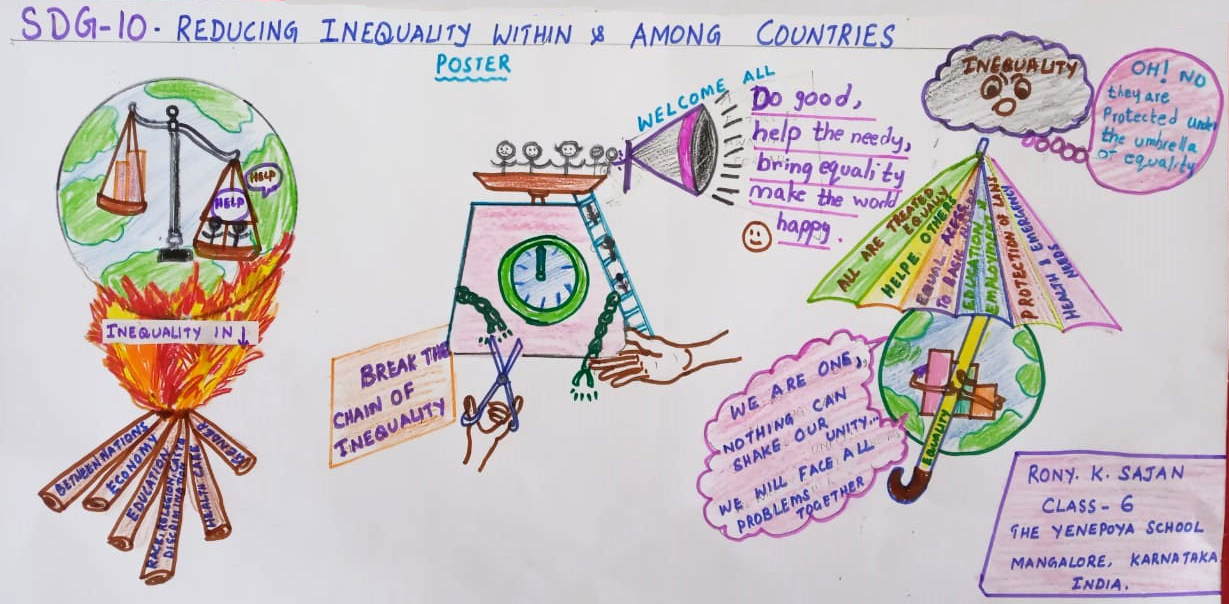 SDG-10. REDUCING INEQUALITY WITHIN & AMONG COUNTRIES
POSTER
HELP
HELP
INEQUALITY IN ↓
BETWEEN NATIONS
ECONOMY
EDUCATION
RACE, RELIGION, CASTE
DISCRIMINATION
HEALTH CARE
GENDER
BREAK THE
CHAIN OF
INEQUALITY
WELCOME ALL
Do good,
help the needy,
bring equality
make the world
happy.
INEQUALITY
OH! NO
they are
Protected under
the umbrella
of equality
ALL ARE TREATED
EQUALLY
HELPE OTHERS
EQUAL ACESS
TO BASIC NEEDS
EDUCATION &
EMPLOYMENT
PROTECTION OF LAWS
HEALTH & EMERGENCY
NEEDS
EQUALITY
WE ARE ONE,
NOTHING CAN
SHAKE OUR UNITY.
WE WILL FACE ALL
PROBLEMS TOGETHER
RONY. K. SAJAN
CLASS - 6
THE YENEPOYA SCHOOL
MANGALORE, KARNATAKA
INDIA.